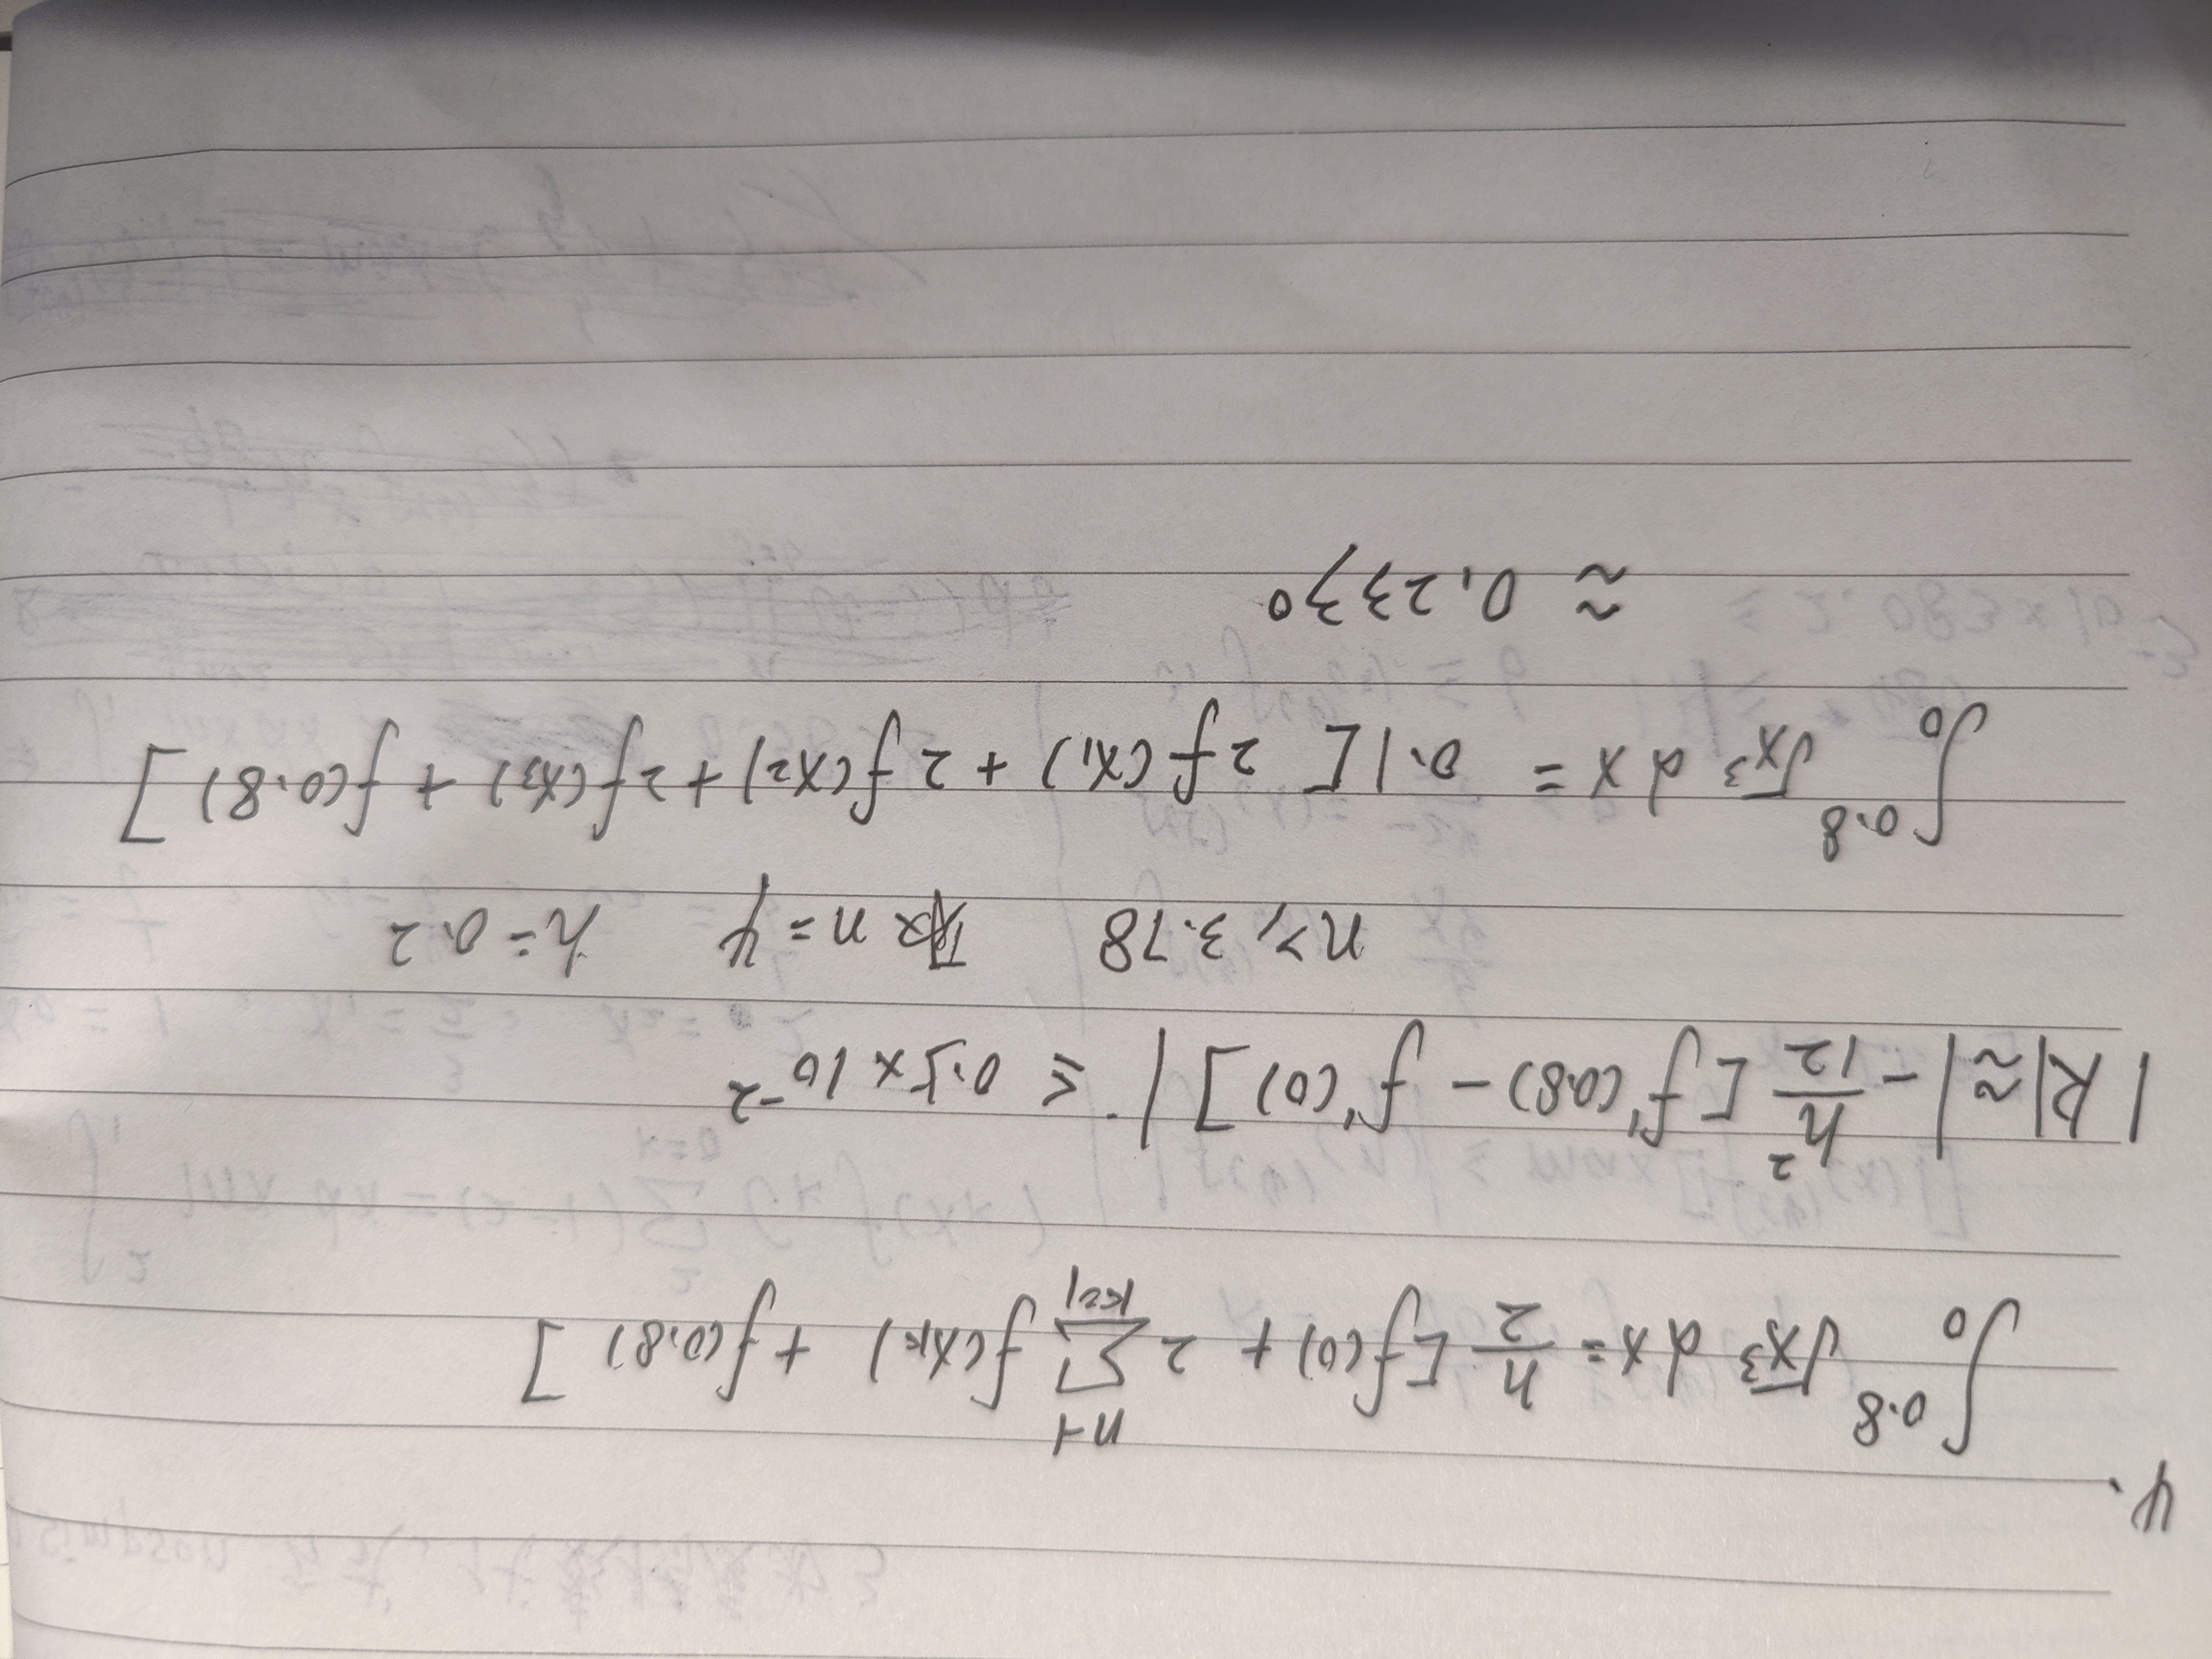 4、
∫₀^0.8 √x³ dx = h/2 [f(0) + 2 ∑_{k=1}^{n-1} f(x_k) + f(0.8)]
|R| ≈ |- h²/12 [f'(0.8) - f'(0)]| ≤ 0.5×10⁻²
n≥3.78 取n=4 h=0.2
∫₀^0.8 √x³ dx = 0.1[2f(x₁) + 2f(x₂) + 2f(x₃) + f(0.8)]
≈ 0.2330